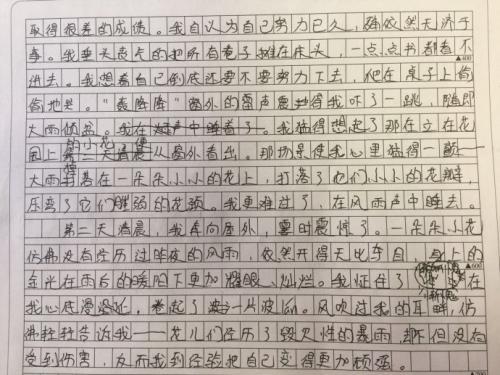 取得很差的成绩。我自认为自己努力已久，确依然无济于
事。我垂头丧气的把所有卷子摊在床头，一点点书都看不
进去。我想着自己到底还要不要努力下去，爬在桌子上偷
偷地哭。"轰隆隆"窗外的雷声震得我吓了一跳，随即
大雨倾盆。我在雷声中睡着了。我猛得想起了那在立在花
园上的小花，便从窗外看出。那场景使我心里猛得一颤——
大雨打落在一朵朵小小的花上，打落了他们小小的花瓣，
压弯了它们脆弱的花颈。我更难过了，在风雨声中睡去。
第二天清晨，我再向窗外，霎时震惊了。一朵朵小花
仿佛没有经历过昨夜的风雨，依然开得夭出夺目，身上的
金光在雨后的暖阳下更加耀眼、灿烂。我怔住了 在
我心底滑过，卷起了一片波瓜。风吹过我的耳畔，仿
佛在告诉我——花儿们经历了毁灭性的暴雨，却不但没有
受到伤害，反而我到经验把自己变得更加顽强。
▲400
▲500